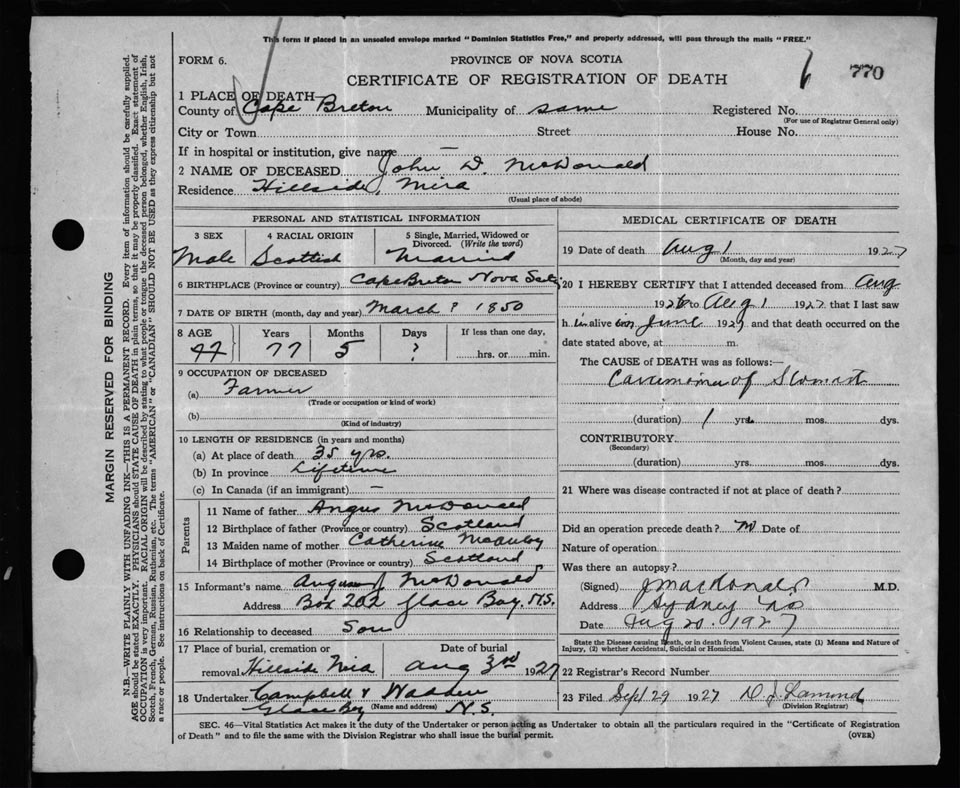 This form if placed in an unsealed envelope marked "Dominion Statistics Free," and property addressed, will pass through the mails "FREE."
FORM 6.
PROVINCE OF NOVA SCOTIA
CERTIFICATE OF REGISTRATION OF DEATH
770
1 PLACE OF DEATH—
County of Cape Breton Municipality of same Registered No.
(For use of Registrar General only)
City or Town Street House No.
If in hospital or institution, give name —
2 NAME OF DECEASED John D. McDonald
Residence Hillside, Mira
(Usual place of abode)
PERSONAL AND STATISTICAL INFORMATION
3 SEX 4 RACIAL ORIGIN 5 Single, Married, Widowed or Divorced. (Write the word)
Male Scottish Married
6 BIRTHPLACE (Province or country) Cape Breton Nova
7 DATE OF BIRTH (month, day and year) March ? 1850
8 AGE Years Months Days If less than one day,
77 5 ? hrs. or min.
9 OCCUPATION OF DECEASED
(a) Farmer
(Trade or occupation or kind of work)
(b)
(Kind of industry)
10 LENGTH OF RESIDENCE (in years and months)
(a) At place of death 35 yrs.
(b) In province Lifetime
(c) In Canada (if an immigrant) —
Parents
11 Name of father Angus McDonald
12 Birthplace of father (Province or country) Scotland
13 Maiden name of mother Catherine
14 Birthplace of mother (Province or country) Scotland
15 Informant's name Angus McDonald
Address Box 202 Glace Bay. N.S.
16 Relationship to deceased Son
17 Place of burial, cremation or removal Hillside Mira
Date of burial Aug 3rd 1927
18 Undertaker Campbell & Wadden
Glace Bay (Name and address) N.S.
MEDICAL CERTIFICATE OF DEATH
19 Date of death Aug 1 1927
(Month, day and year)
20 I HEREBY CERTIFY that I attended deceased from Aug
1926 to Aug 1 1927 that I last saw
h im alive on June 1927 and that death occurred on the
date stated above, at m.
The CAUSE of DEATH was as follows:—
Carcinoma of Stomach
(duration) 1 yrs. mos. dys.
CONTRIBUTORY
(Secondary)
(duration) yrs. mos. dys.
21 Where was disease contracted if not at place of death?
Did an operation precede death? No Date of
Nature of operation
Was there an autopsy?
(Signed) J MacDonald M.D.
Address Sydney NS
Date Aug 20. 1927
State the Disease causing Death, or in death from Violent Causes, state (1) Means and Nature of Injury, (2) whether Accidental, Suicidal or Homicidal.
22 Registrar's Record Number
23 Filed Sept 29 1927 D. J. Lamond
(Division Registrar)
SEC. 46—Vital Statistics Act makes it the duty of the Undertaker or person acting as Undertaker to obtain all the particulars required in the "Certificate of Registration
of Death" and to file the same with the Division Registrar who shall issue the burial permit.
(OVER)
MARGIN RESERVED FOR BINDING
N.B.—WRITE PLAINLY WITH UNFADING INK—THIS IS A PERMANENT RECORD. Every item of information should be carefully supplied.
AGE should be stated EXACTLY. PHYSICIANS should STATE CAUSE OF DEATH in plain terms, so that it may be properly classified. Exact statement of
OCCUPATION is very important. RACIAL ORIGIN will be described by stating to what people or tongue the deceased person belonged, whether English, Irish,
Scotch, French, German, Russian, Ruthenian, etc. The terms "AMERICAN" or "CANADIAN" SHOULD NOT BE USED as they express citizenship but not
a race or people. See instructions on back of Certificate.